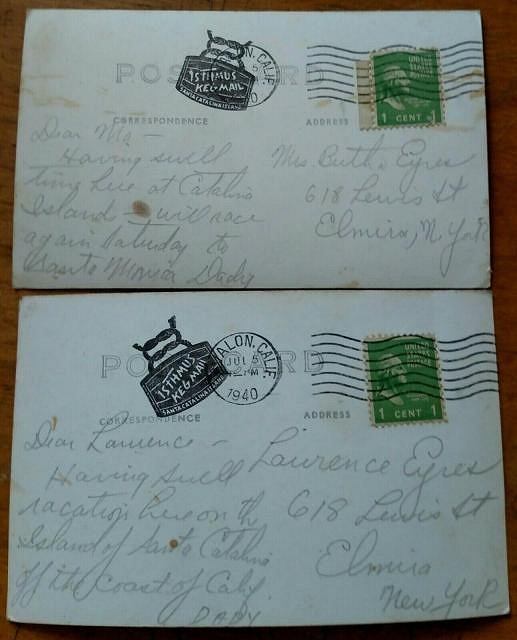 POST CARD
ISTHMUS
KEG-MAIL
SANTA CATALINA ISLAND
ALON, CALIF.
5
0
UNITED
STATES
POSTAGE
1 CENT 1
CORRESPONDENCE
ADDRESS
Dear Ma —
Having swell
time here at Catalina
Island — will race
again Saturday to
Santa Monica Dady
Mrs. Ruth Eyres
618 Lewis St
Elmira, N. York
POST CARD
ISTHMUS
KEG-MAIL
SANTA CATALINA ISLAND
ALON, CALIF.
JUL 5
12 M
1940
UNITED
STATES
POSTAGE
1 CENT 1
CORRESPONDENCE
ADDRESS
Dear Laurence —
Having swell
vacation here on th
Island of Santa Catalina
off the coast of Calif.
DADY
Laurence Eyres
618 Lewis St
Elmira
New York